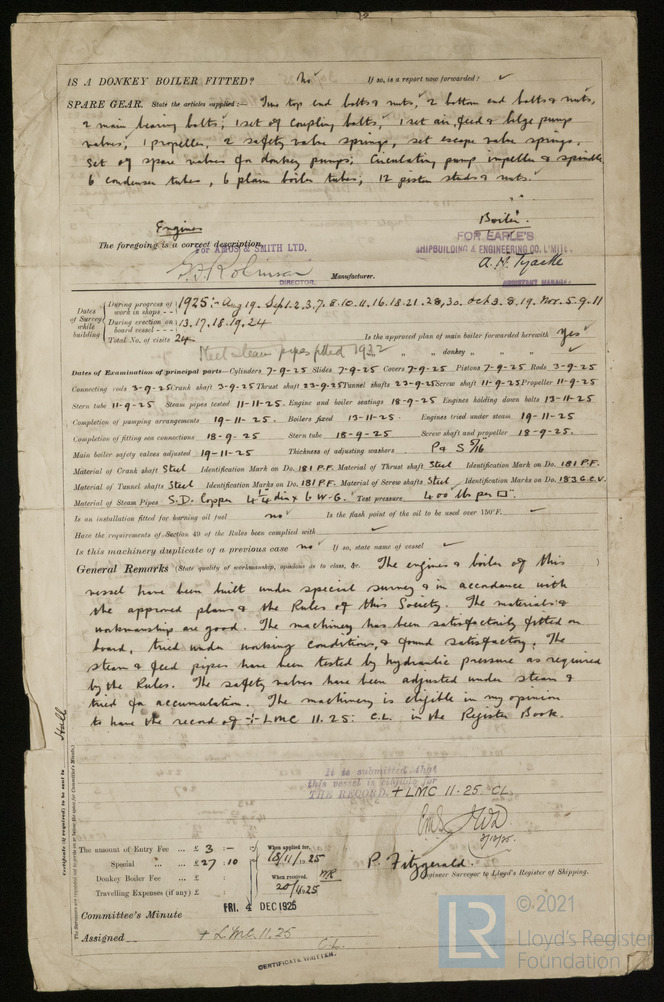 IS A DONKEY BOILER FITTED? No ✓ If so, is a report now forwarded? ✓
SPARE GEAR. State the articles supplied:— Two top end bolts & nuts, 2 bottom end bolts & nuts,
2 main bearing bolts, 1 set of coupling bolts, 1 set air, feed & bilge pump
valves, 1 propeller, 2 safety valve springs, set escape valve springs,
Set of spare valves for donkey pumps, Circulating pump impeller & spindle
6 condenser tubes, 6 plain boiler tubes, 12 piston studs & nuts.
Engines Boiler.
The foregoing is a correct description,
For AMOS & SMITH LTD. FOR EARLE'S
SHIPBUILDING & ENGINEERING CO. LIMITED.
Robinson A. N. Tyacke
DIRECTOR. Manufacturer. ASSISTANT MANAGER
Dates of Survey while building
During progress of work in shops - - 1925:- Aug 19. Sept. 2. 3. 7. 8. 10. 11. 16. 18. 21. 28, 30. Oct 3. 8. 19. Nov. 5. 9. 11
During erection on board vessel - - - 13. 17. 18. 19. 24
Total No. of visits 24 Is the approved plan of main boiler forwarded herewith Yes ✓
Steel steam pipes fitted 1932 " " donkey " " ✓
Dates of Examination of principal parts—Cylinders 7-9-25 Slides 7-9-25 Covers 7-9-25 Pistons 7-9-25 Rods 3-9-25
Connecting rods 3-9-25 Crank shaft 3-9-25 Thrust shaft 23-9-25 Tunnel shafts 23-9-25 Screw shaft 11-9-25 Propeller 11-9-25
Stern tube 11-9-25 Steam pipes tested 11-11-25. Engine and boiler seatings 18-9-25 Engines holding down bolts 13-11-25
Completion of pumping arrangements 19-11-25. Boilers fixed 13-11-25. Engines tried under steam 19-11-25
Completion of fitting sea connections 18-9-25 Stern tube 18-9-25 Screw shaft and propeller 18-9-25.
Main boiler safety valves adjusted 19-11-25 Thickness of adjusting washers P & S 5/16
Material of Crank shaft Steel Identification Mark on Do. 181 P.F. Material of Thrust shaft Steel Identification Mark on Do. 181 P.F.
Material of Tunnel shafts Steel Identification Marks on Do. 181 P.F. Material of Screw shafts Steel Identification Marks on Do. 183 G.C.V.
Material of Steam Pipes S.D. Copper 4 1/4 dia x 6 W.G. Test pressure 400 lbs per □.
Is an installation fitted for burning oil fuel no Is the flash point of the oil to be used over 150°F. ✓
Have the requirements of Section 49 of the Rules been complied with ✓
Is this machinery duplicate of a previous case no If so, state name of vessel ✓
General Remarks (State quality of workmanship, opinions as to class, &c. The engines & boiler of this
vessel have been built under special survey & in accordance with
the approved plans & the Rules of this Society. The materials &
workmanship are good. The machinery has been satisfactorily fitted on
board, tried under working conditions, & found satisfactory. The
steam & feed pipes have been tested by hydraulic pressure as required
by the Rules. The safety valves have been adjusted under steam &
tried for accumulation. The machinery is eligible in my opinion
to have the record of + LMC 11.25. C.L. in the Register Book.
Hull
Certificate (if required) to be sent to
It is submitted that
this vessel is eligible for
THE RECORD. + LMC 11.25 CL.
The amount of Entry Fee ... £ 3 : - : When applied for,
Special ... ... £ 27 : 10 : 18/11/1925
Donkey Boiler Fee ... £ : : When received,
Travelling Expenses (if any) £ : :
P. Fitzgerald.
Engineer Surveyor to Lloyd's Register of Shipping.
Committee's Minute FRI. 4 DEC 1925
Assigned + LMC. 11.25
C.L.
CERTIFICATE WRITTEN.
LR
© 2021
Lloyd's Register
Foundation